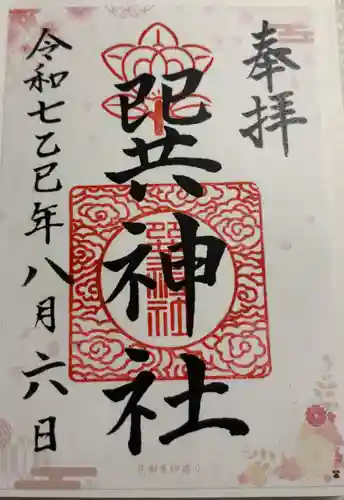 奉拝
巽神社
令和七乙巳年八月六日